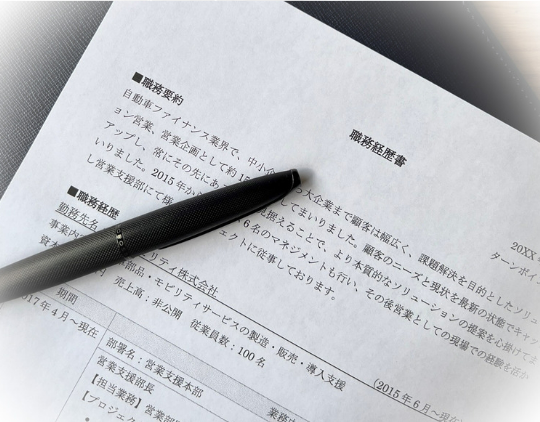 職務経歴書
20XX
ターンポイン
■職務要約
自動車ファイナンス業界で、中小企 大企業まで顧客は幅広く、課題解決を目的としたソリュ
ョン営業、営業企画として約 してまいりました。顧客のニーズと現状を最新の状態でキャッ
アップし、常にその先にあ 見据えることで、より本質的なソリューションの提案を心掛けてま
いりました。2015年か 6名のマネジメントも行い、その後営業としての現場での経験を活か
し営業支援部にて様 ェクトに従事しております。
■職務経歴
勤務先名 リティ株式会社 (2015年6月~現在)
事業内 部品・モビリティサービスの製造・販売・導入支援
資本 売上高:非公開 従業員数:100名
期間 業務内
2017年4月~現在 部署名:営業支援本部
営業支援部長
【担当業務】営業部
【プロジェク